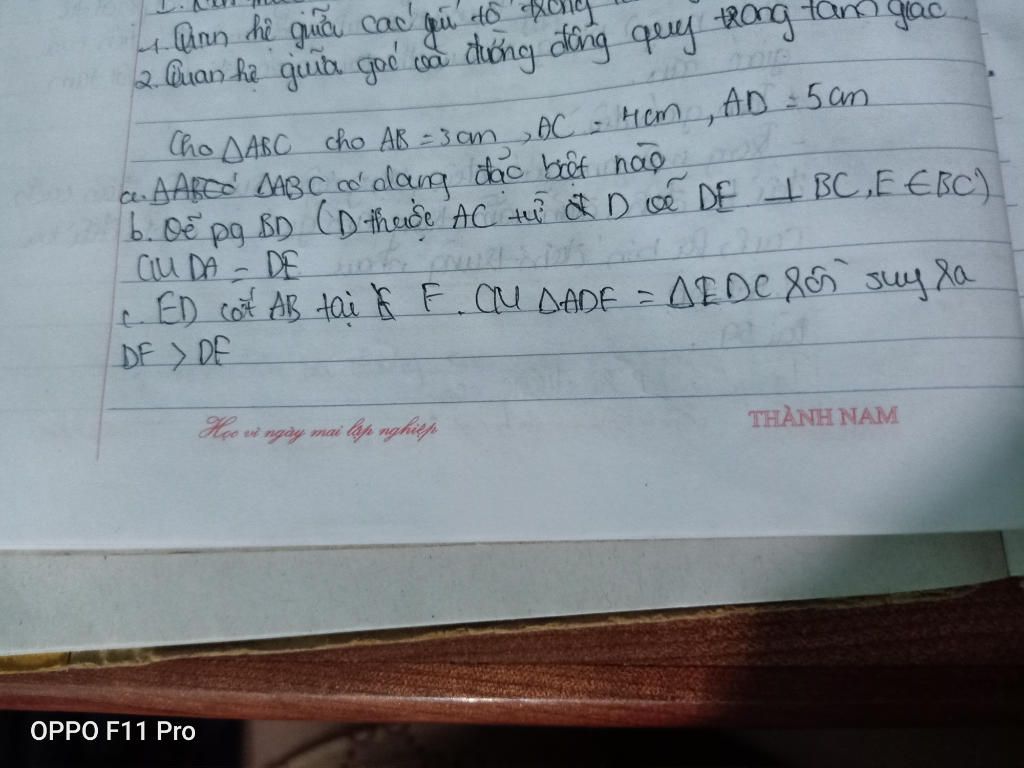 1. Quan hệ giữa các yếu tố trong
2. Quan hệ giữa góc và đường đồng quy trong tam giác
Cho △ABC cho AB = 3cm, AC = 4cm, AD = 5cm
a. △ABC có △ABC có dạng đặc biệt nào
b. Vẽ pg BD (D thuộc AC từ D vẽ DE ⊥ BC, E ∈ BC)
CM DA = DE
c. ED cắt AB tại F. CM △ADF = △EDC rồi suy ra
DF > DE
Học vì ngày mai lập nghiệp
THÀNH NAM
OPPO F11 Pro